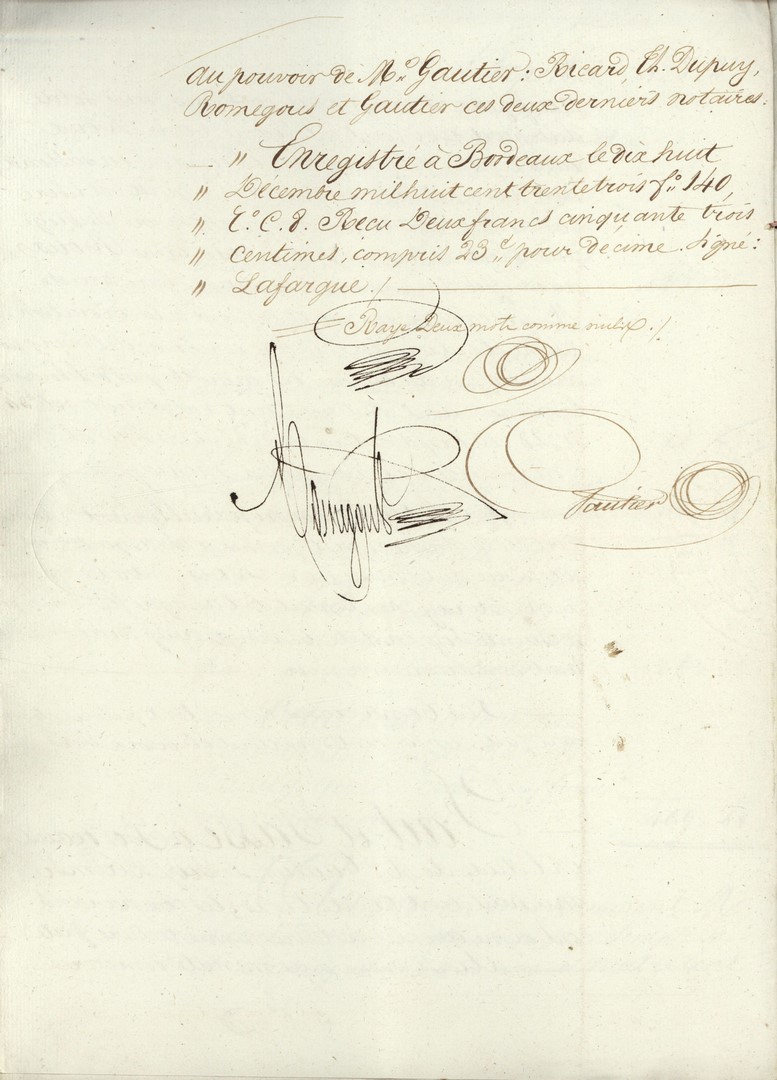 au pouvoir de Me. Gautier: Ricard, Ch. Dupuy,
Romegous et Gautier ces deux derniers notaires.
— " Enregistré à Bordeaux le dix huit
" Décembre mil huit cent trente trois fo. 140,
" Vo. C. 8. Reçu Deux francs cinquante trois
" Centimes, compris 23 c. pour décime. Signé:
" Lafargue ./.
Rayé Deux mots comme nuls ./.
Gautier